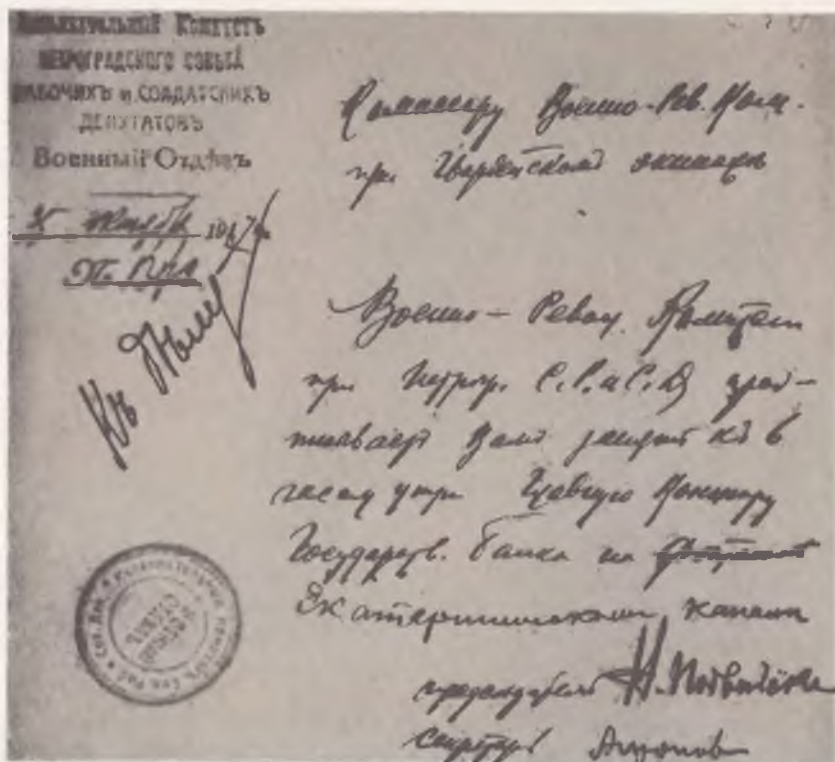 Исполнительный Комитетъ
Петроградскаго Совѣта
Рабочихъ и Солдатскихъ
Депутатовъ
Военный Отдѣлъ
1917
Къ Дѣлу
Комиссару Военно-Рев. Ком.
при Гвардейскомъ экипаже
Военно-Револ. Комитет
при Петрогр. С. Р. и С. Д.
Вамъ занять къ 6
часам утра Главную Контору
Государств. банка на
Екатерининском канале
председатель Н. Подвойский
секретарь Антонов